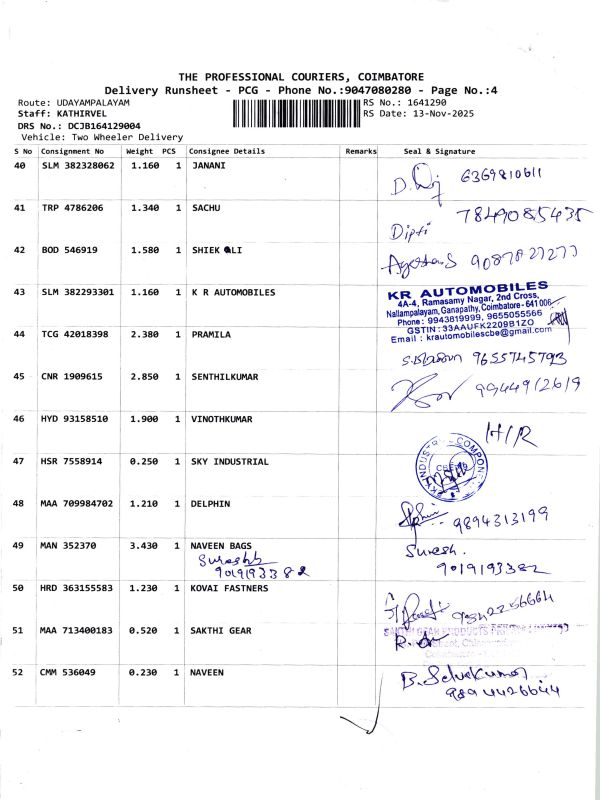 THE PROFESSIONAL COURIERS, COIMBATORE
Delivery Runsheet - PCG - Phone No.:9047080280 - Page No.:4
Route: UDAYAMPALAYAM RS No.: 1641290
Staff: KATHIRVEL RS Date: 13-Nov-2025
DRS No.: DCJB164129004
Vehicle: Two Wheeler Delivery
S No Consignment No Weight PCS Consignee Details Remarks Seal & Signature
40 SLM 382328062 1.160 1 JANANI
6369810611
41 TRP 4786206 1.340 1 SACHU
7849085435
Dipti
42 BOD 546919 1.580 1 SHIEK ALI
43 SLM 382293301 1.160 1 K R AUTOMOBILES
KR AUTOMOBILES
4A-4, Ramasamy Nagar, 2nd Cross,
Nallampalayam, Ganapathy, Coimbatore - 641 006
Phone : 9943819999, 9655055566
GSTIN : 33AAUFK2209B1ZO
Email : krautomobilescbe@gmail.com
44 TCG 42018398 2.380 1 PRAMILA
9655745793
45 CNR 1909615 2.850 1 SENTHILKUMAR
9944912619
46 HYD 93158510 1.900 1 VINOTHKUMAR
H/R
47 HSR 7558914 0.250 1 SKY INDUSTRIAL
48 MAA 709984702 1.210 1 DELPHIN
9894313199
49 MAN 352370 3.430 1 NAVEEN BAGS
Suresh.
9019193382
9019193382
50 HRD 363155583 1.230 1 KOVAI FASTNERS
51 MAA 713400183 0.520 1 SAKTHI GEAR
52 CMM 536049 0.230 1 NAVEEN
B. Selvakumar